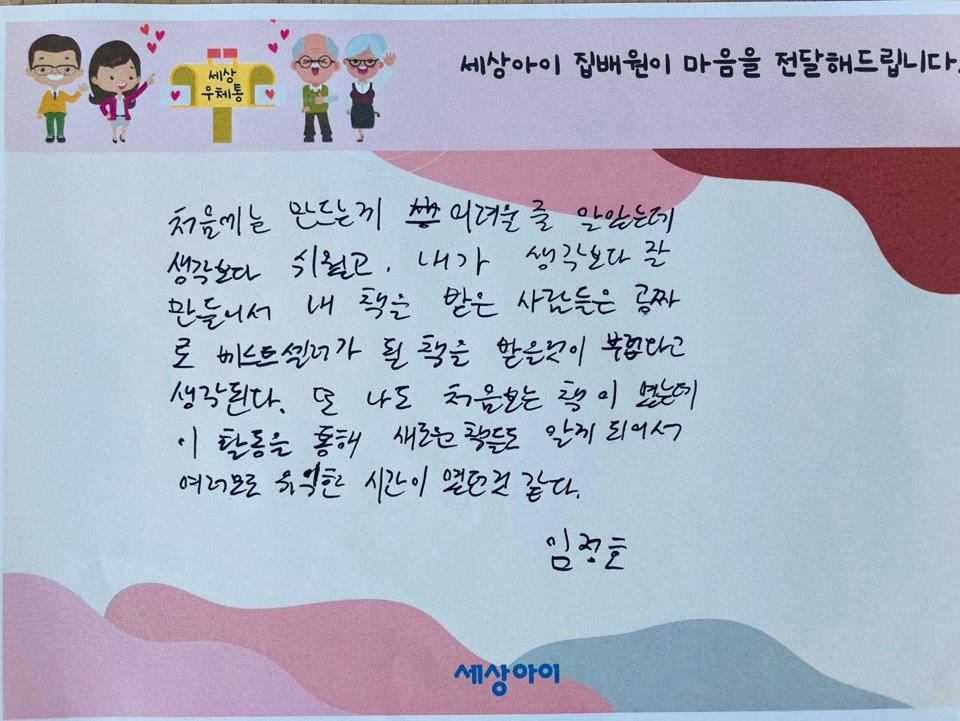 세상
우체통
세상아이 집배원이 마음을 전달해드립니다.
처음에는 만드는게 어려울 줄 알았는데
생각보다 쉬웠고, 내가 생각보다 잘
만들어서 내 책을 받은 사람들은 공짜
로 베스트셀러가 될 책을 받을것이 부럽다고
생각된다. 또 나도 처음보는 책이 였는데
이 활동을 통해 새로운 책들도 알게 되어서
여러모로 유익한 시간이 였던것 같다.
임정호
세상아이